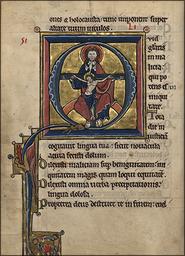 ones et holocausta tunc imponent super
altare tuum vitulos.
vid
gliaris
in ma
licia
qui po
tens es in
iniqui
tate
Tota
die in
iusticia
cogitavit lingua tua sicut novacula
acuta fecisti dolum.
Dilexisti maliciam super benignitatem ini
quitatem magis quam loqui equitatem.
Dilexisti omnia verba precipitationis
lingua dolosa.
Propterea deus destruet te in finem